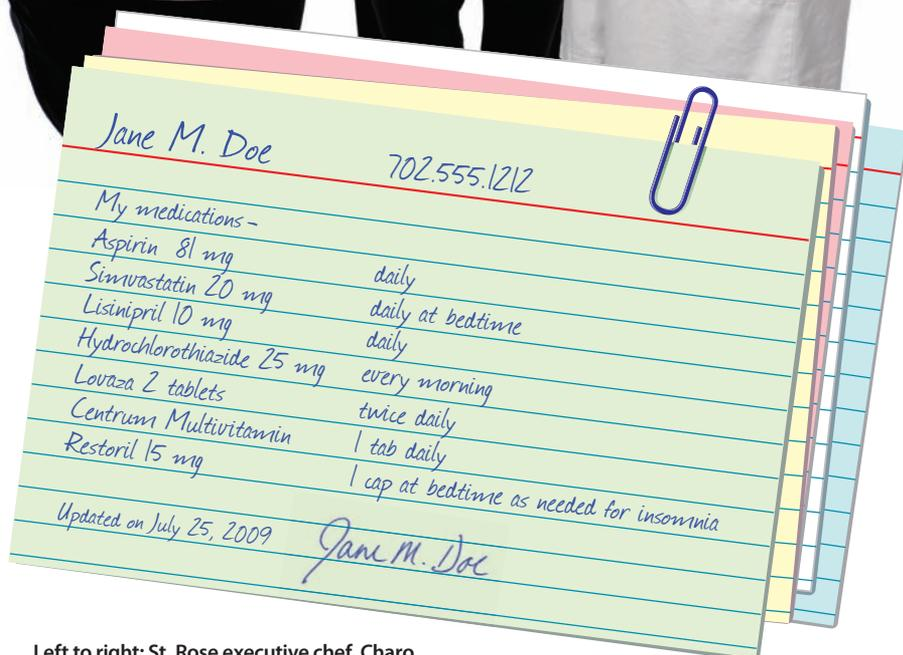 Jane M. Doe 702.555.1212
My medications-
Aspirin 81 mg daily
Simvastatin 20 mg daily at bedtime
Lisinipril 10 mg daily
Hydrochlorothiazide 25 mg every morning
Lovaza 2 tablets twice daily
Centrum Multivitamin 1 tab daily
Restoril 15 mg 1 cap at bedtime as needed for insomnia
Updated on July 25, 2009 Jane M. Doe
Left to right: St. Rose executive chef, Charo